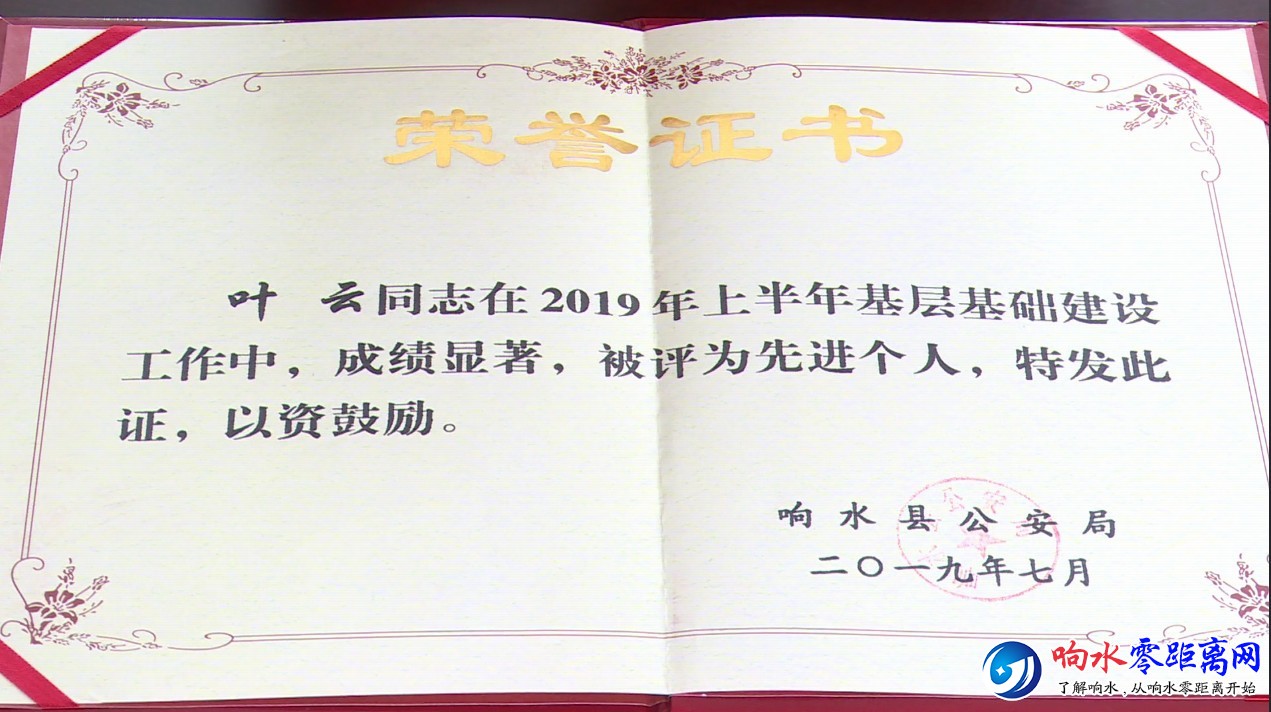 荣誉证书
叶 云同志在2019年上半年基层基础建设
工作中，成绩显著，被评为先进个人，特发此
证，以资鼓励。
响水县公安局
二〇一九年七月
响水零距离网
了解响水，从响水零距离开始